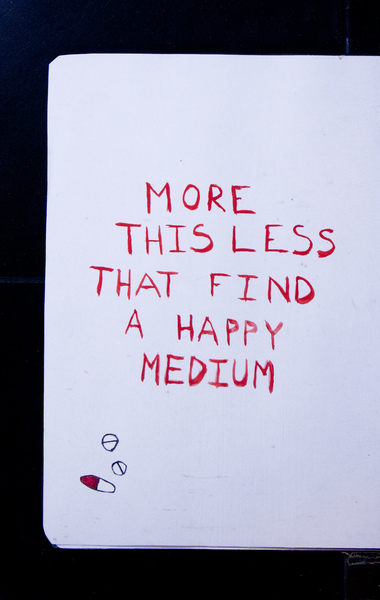 MORE
THIS LESS
THAT FIND
A HAPPY
MEDIUM